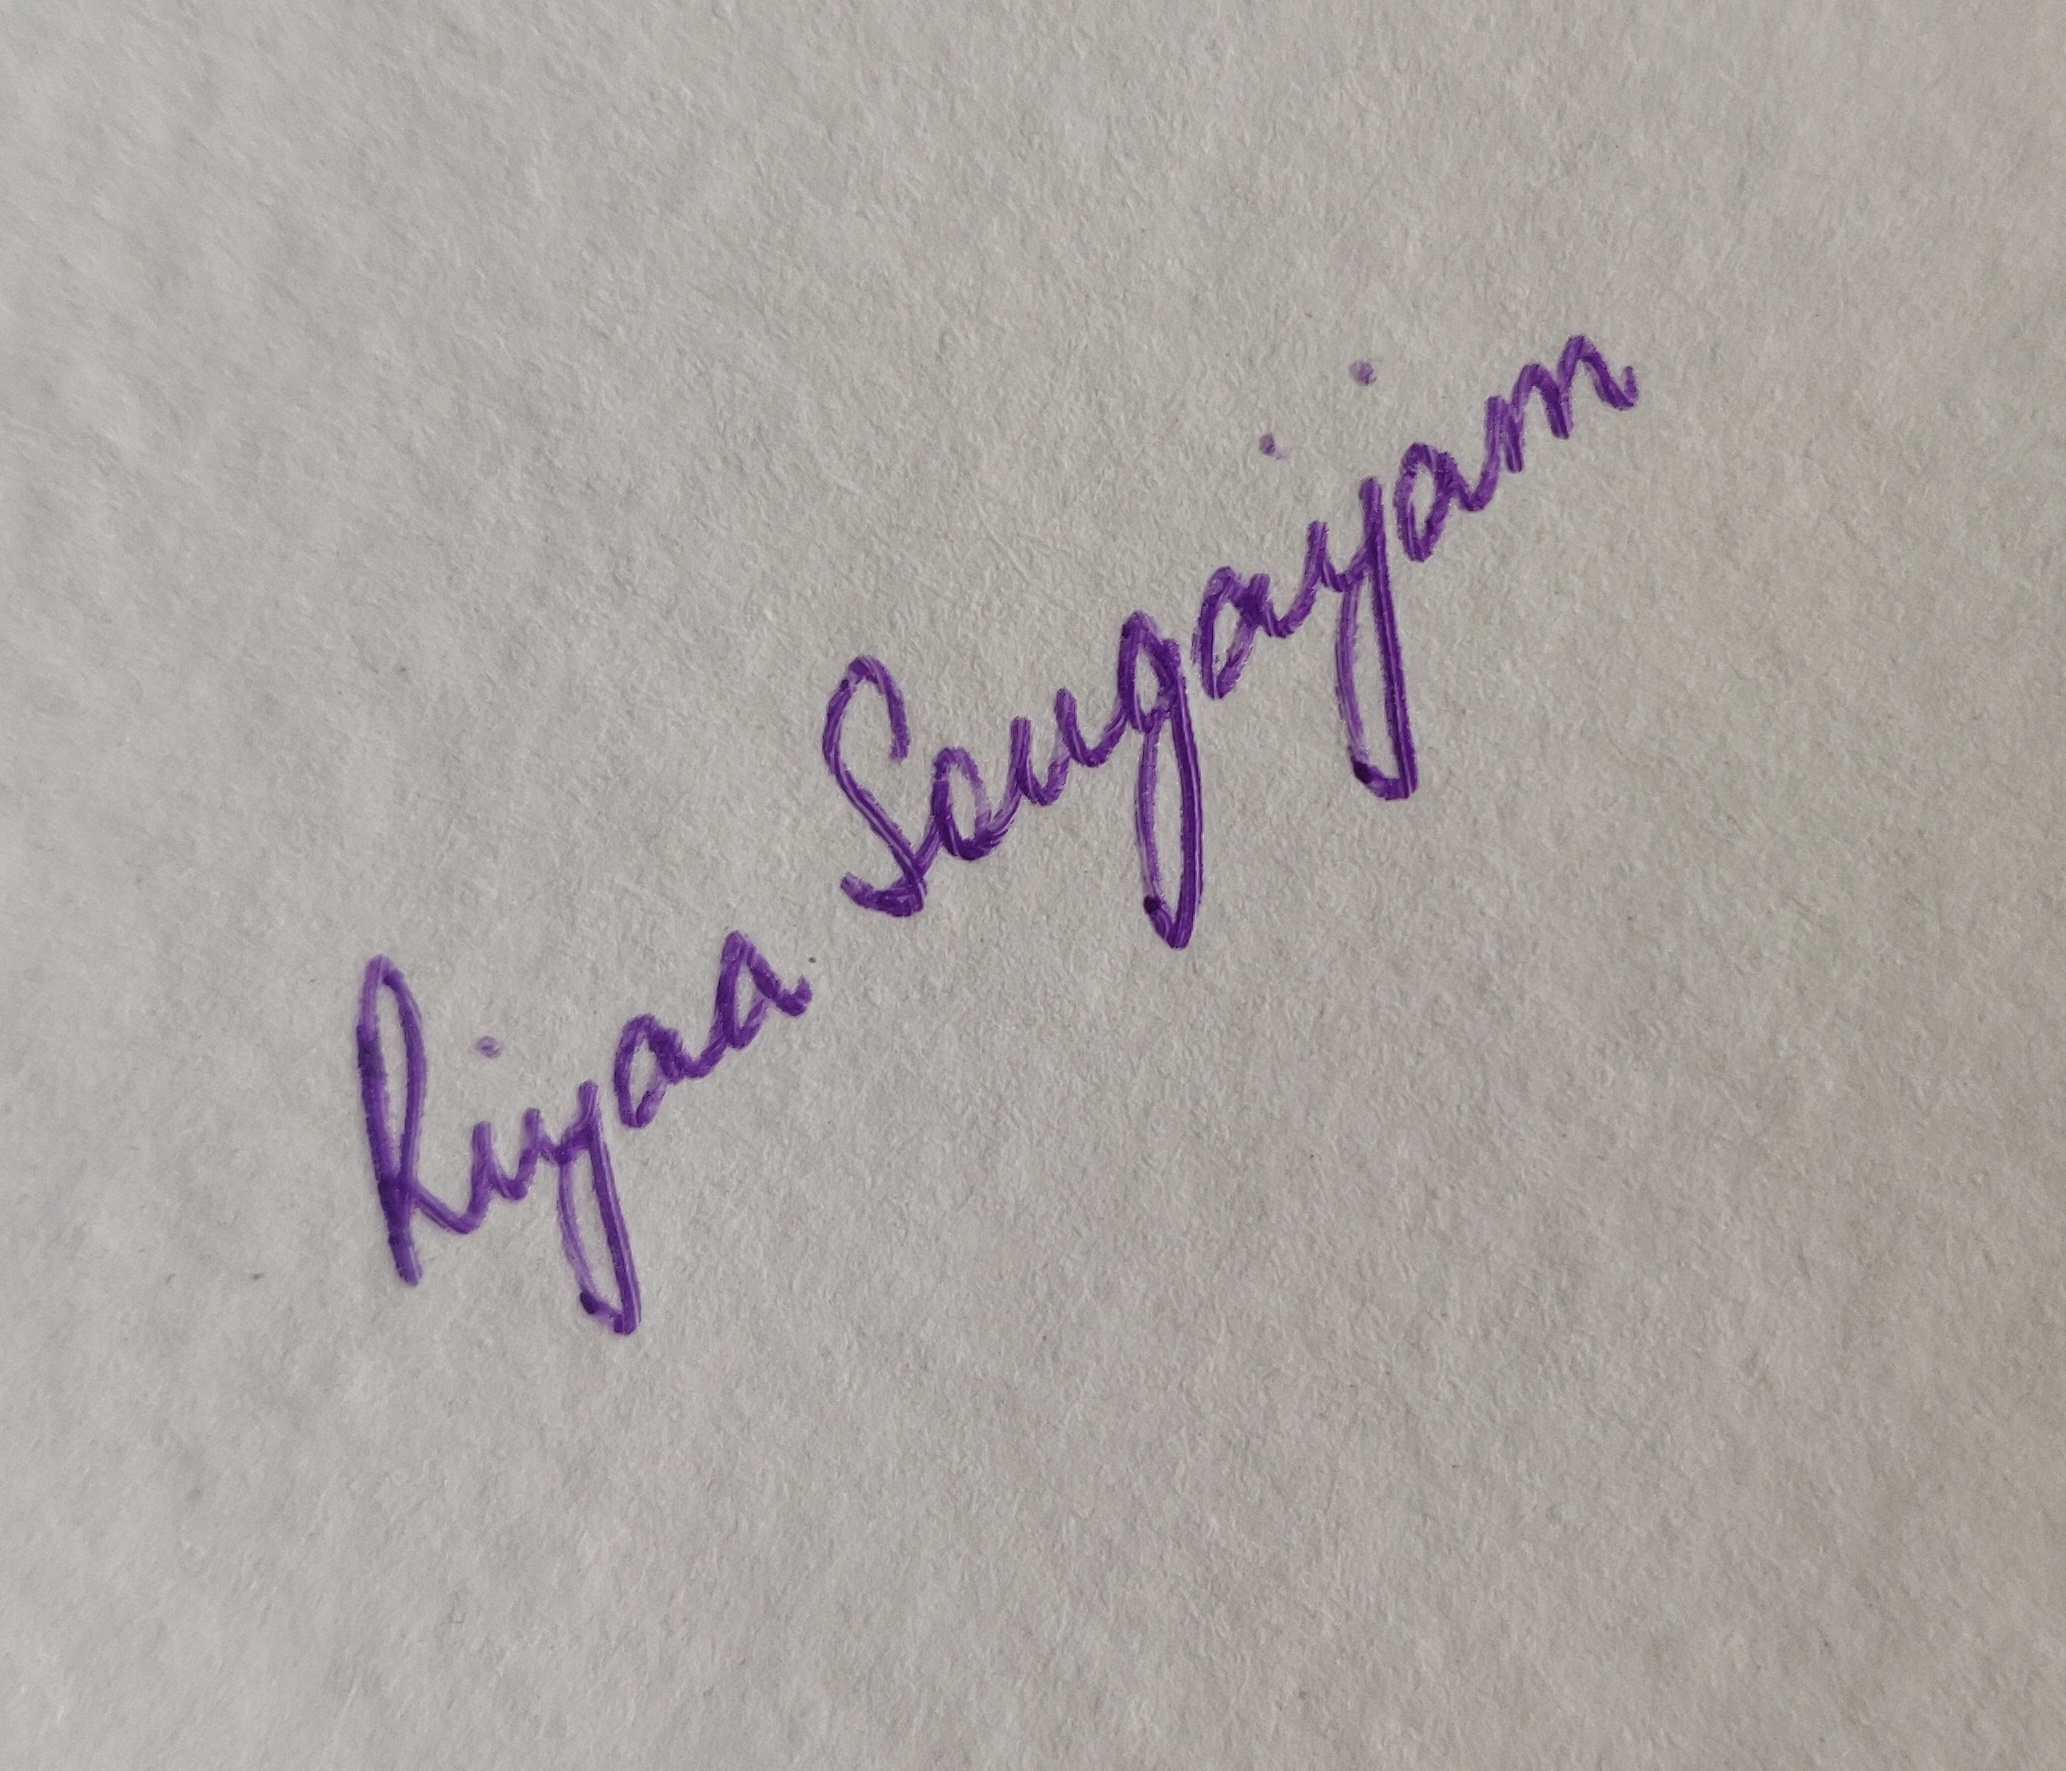 Riyaa Sougaijam